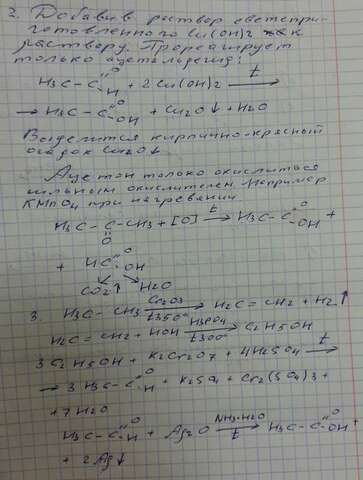 2. Добавив раствор свежепри-
готовленного Cu(OH)2 к
раствору. Прореагирует
только ацетальдегид:
H3C - C =O -H + 2Cu(OH)2 t→
→ H3C - C =O -OH + Cu2O↓ + H2O
Выделится кирпично-красный
осадок Cu2O↓.
Ацетон только окислиться
сильным окислителем. Например
KMnO4 при нагревании
H3C - C - CH3 + [O] t→ H3C - C =O -OH +
O
+ HC =O -OH
CO2↑ H2O
3. H3C - CH3 Cr2O3 t350° → H2C = CH2 + H2↑
H2C = CH2 + HOH H3PO4 t300° → C2H5OH
3C2H5OH + K2Cr2O7 + 4H2SO4 t→
→ 3H3C - C =O -H + K2SO4 + Cr2(SO4)3 +
+ 7H2O
H3C - C =O -H + Ag2O NH3·H2O t → H3C - C =O -OH +
+ 2Ag↓